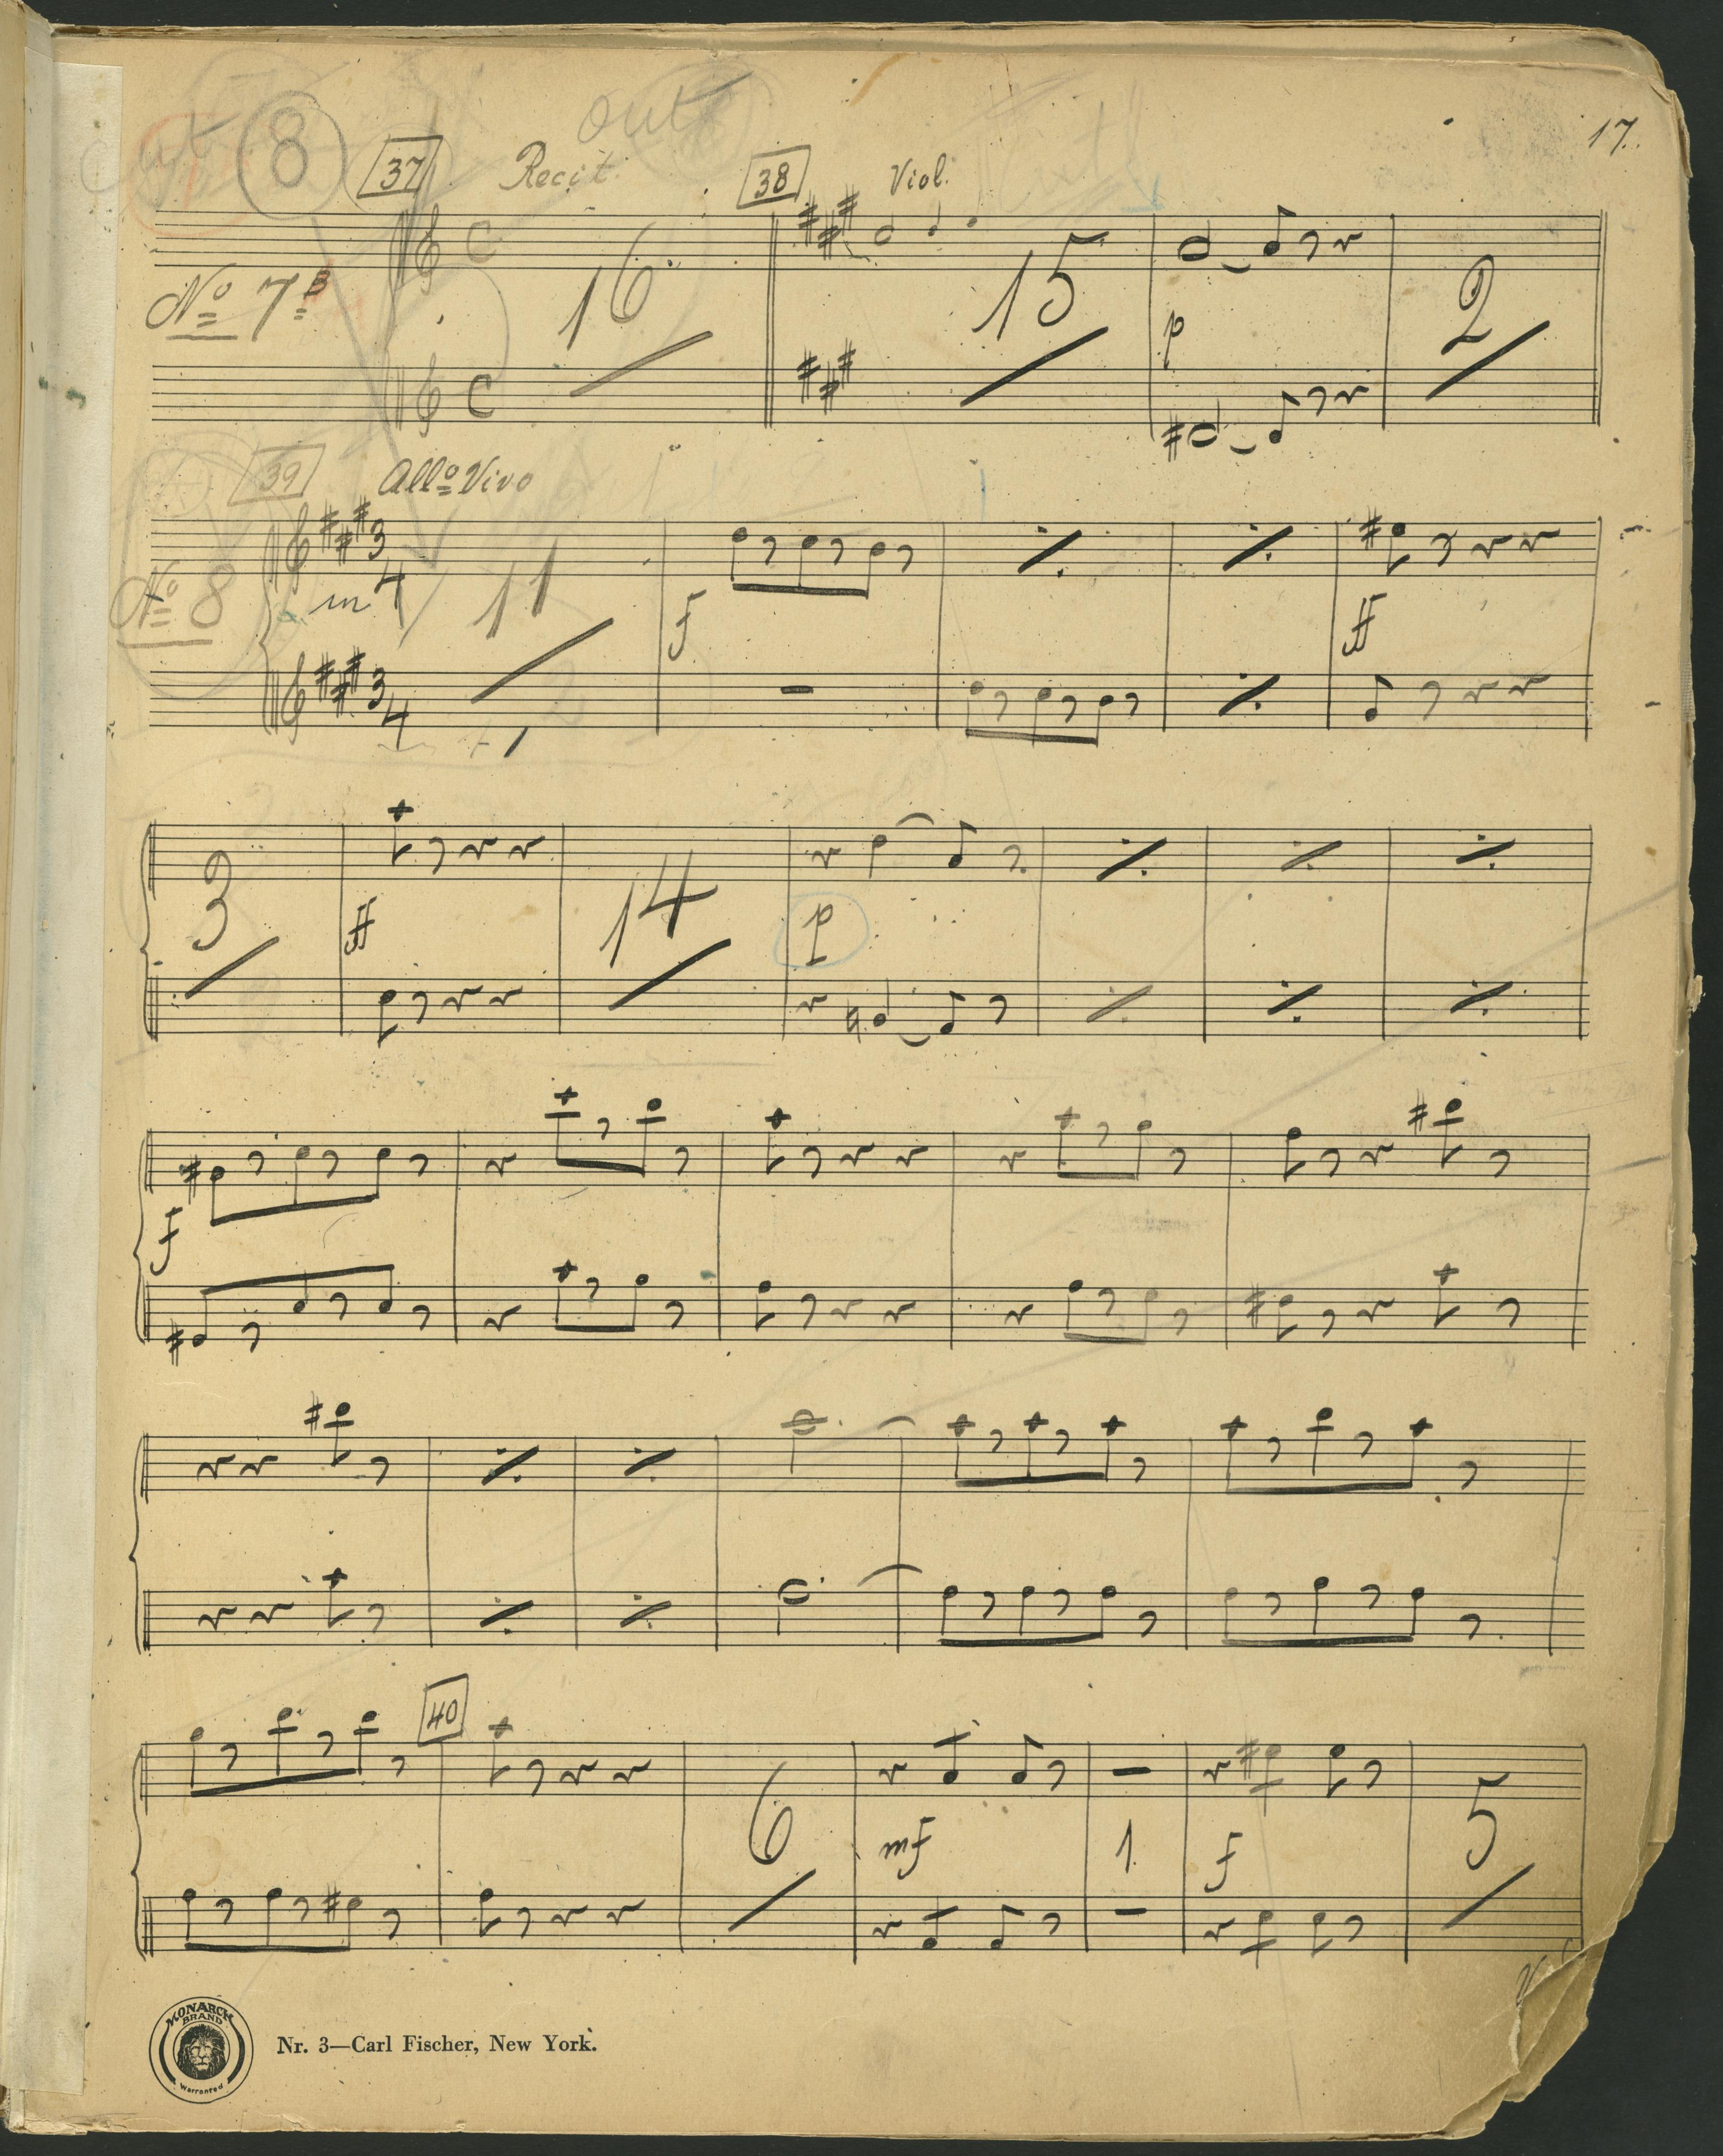 cut 8 out
17.
37 Recit. 38 Viol.
C 16 15 2
No 7B
p
C
39 Allo Vivo
3 4 11
No 8 in 1
f ff
3 4
3 14
ff p
f
40
6 5
mf 1. f
MONARCH BRAND
Warranted
Nr. 3—Carl Fischer, New York.